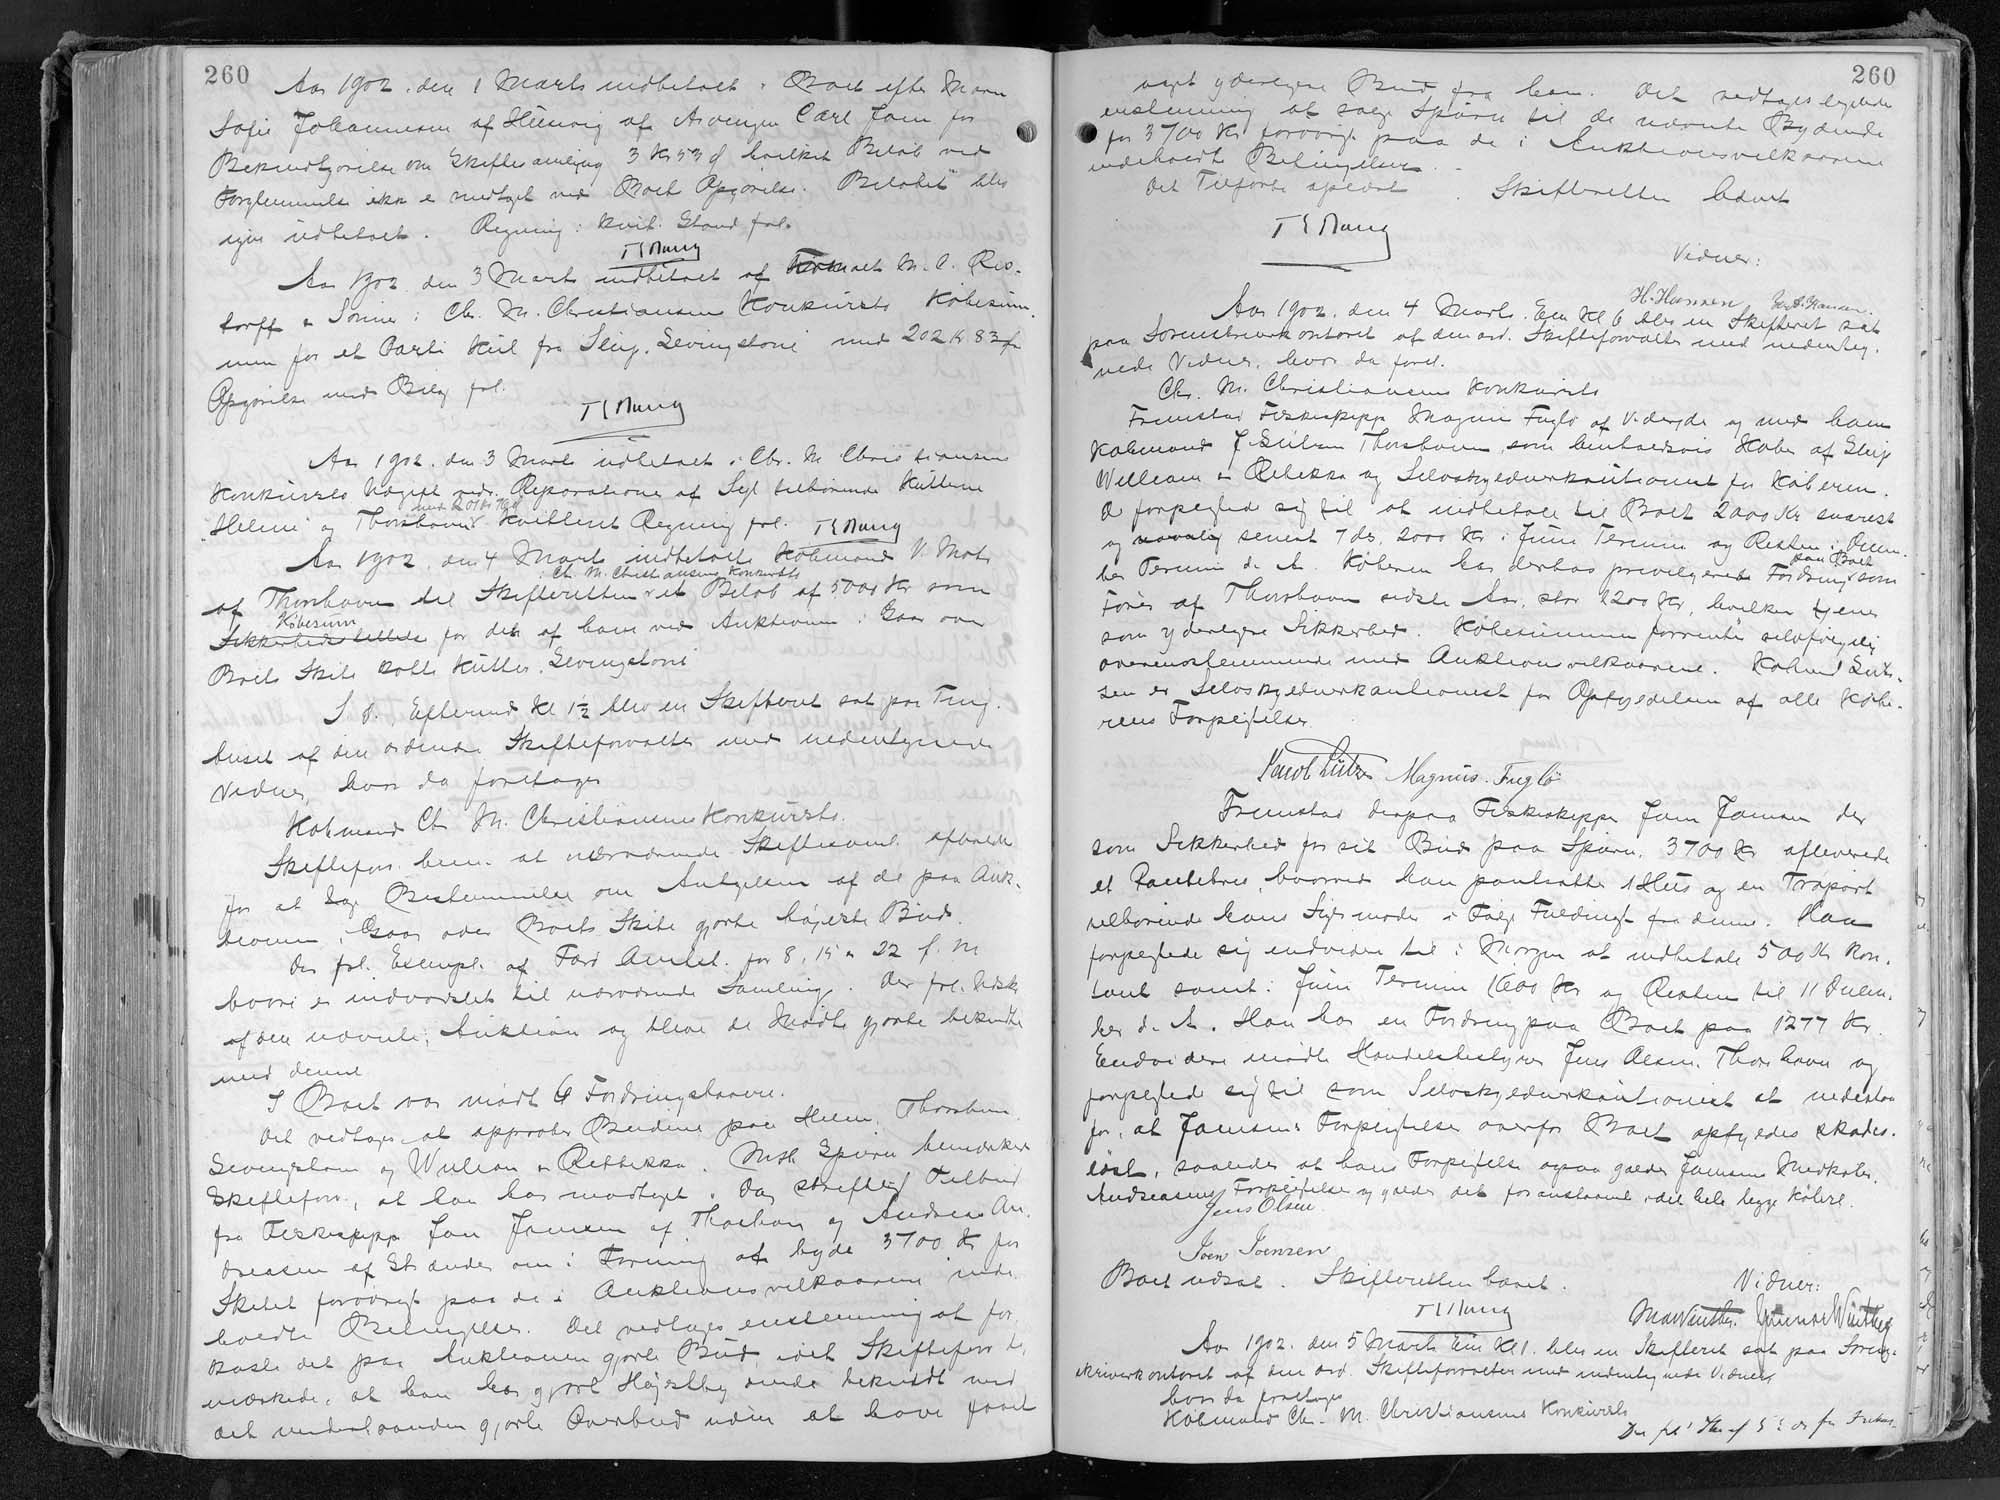 260
Aar 1902. den 1 Marts indbetalt i Boet efter Maren
Sofie Johannesen af Husevig af Avisen Carl Joen for
Bekendtgørelse om Skiftesamling 3 Kr 53 Ø hvilket Beløb ved
Forglemmelse ikke er medtaget ved Boets Opgørelse. Beløbet blev
igen udbetalt. Regning: kvit. Stand frl.
T S Maug
Aar 1902 den 3 Marts indbetalt af Firmaet M. C. Res-
torff & Sønner i Chr. M. Christiansens Konkursbo Købesum-
men for et Parti Kul fra Slup. Levingstone med 202 Kr 83 Ø
Opgørelse med Bilag frl.
T S Maug
Aar 1902. den 3 Marts udbetalt i Chr. M. Christiansens
Konkursbo Udgift vedr. Reparationer af Sejl tilhørende Kutterne
"Helene" og Thorshavn Kvitteret Regning frl. T S Maug
Aar 1902 den 4 Marts indbetalte Købmand V. Mohr
i Chr. M. Christiansens Konkursbo
af Thorshavn til Skifteretten et Beløb af 5000 Kr som
Købesum
Sikkerhedsstillelse for den af ham ved Auktionen i Gaar over
Boets Skibe købte Kutter. Levingstone
S. D. Eftermd Kl 1½ blev en Skifteret sat paa Ting-
huset af den ordinære Skifteforvalter med nedentegnede
Vidner, hvor da foretages
Købmand Ch. M. Christiansens Konkursbo.
Skiftefor. bem. at nærværende Skiftesaml. afholdes
for at tage Bestemmelse om Antagelsen af de paa Auk-
tionen i Gaar over Boets Skibe gjorte højeste Bud.
Der frl. Exempl. af Færø Amtst. for 8, 15 & 22 f. M
hvori er indvarslet til nærværende Samling. Der frl. Udskr
af den nævnte Auktion og blev de Mødte gjorte bekendte
med denne
I Boet var mødt 6 Fordringshavere.
Det vedtages at approbere Budene paa Helene, Thorshavn
Levingstone og William & Rebekka. Mht Spurn bemærkede
Skiftefor., at han har modtaget i Dag skriftligt Tilbud
fra Fiskeskipper Joen Joensen af Thorshavn og Andreas An-
dreasen af Strænder om i Forening at byde 3700 Kr for
Skibet forøvrigt paa de i Auktionsvilkaarene inde-
holdte Betingelser. Det vedtages enstemmig at for-
kaste det paa Auktionen gjorte Bud, idet Skiftefor be-
mærkede, at han har gjort Højstbydende bekendt med
det underhaanden gjorte Overbud uden at have faaet
260
noget yderligere Bud fra ham. Det vedtages ligeledes
enstemmig at sælge Spurn til de nævnte Bydende
for 3700 Kr forøvrigt paa de i Auktionsvilkaarene
indeholdte Betingelser.
Det Tilførte oplæst. Skifteretten hævet
T S Maug
Vidner:
H. Hansen
Aar 1902. den 4 Marts. Em Kl 6 blev en Skifteret sat
paa Sorenskriverkontoret af den ord. Skifteforvalter med nedenteg-
nede Vidner, hvor da foret.
Chr. M. Christiansens Konkursbo
Fremstod Fiskeskipper Magnus Fuglø af Viderejde og med ham
Købmand J. Lützen Thorshavn, som henholdsvis Køber af Slup
William & Rebekka og Selvskyldnerkautionist for Køberen.
De forpligted sig til at indbetale til Boet 2000 Kr snarest
og senest 7 ds. 2000 Kr i Juni Termin og Resten i Decem-
paa Boet
ber Termin d. A. Køberen har derhos privilegeret Fordring som
Fører af Thorshavn sidste Aar, stor 1200 Kr, hvilken tjener
som yderligere Sikkerhed. Købesummen forrentes selvfølgelig
overensstemmende med Auktionsvilkaarene. Købmd Lüt-
zen er Selvskyldnerkautionist for Opfyldelsen af alle Købe-
rens Forpligtelser.
Jacob Lützen Magnus. Fuglø
Fremstod derpaa Fiskeskipper Joen Joensen der
som Sikkerhed for sit Bud paa Spurn. 3700 Kr afleverede
et Pantebrev, hvorved han pantsatte 1 Hus og en Traport
tilhørende hans Svigermoder i Følge Fuldmagt fra denne. Han
forpligtede sig endvidere til i Morgen at indbetale 500 Kr kon-
tant samt i Juni Termin 1600 Kr og Resten til 11 Decem-
ber d. A. Han har en Fordring paa Boet paa 1277 Kr.
Endvidere mødte Handelsbestyrer Jens Olsen. Thorshavn og
forpligted sig til som Selvskyldnerkautionist at indestaa
for, at Joensens Forpligtelser overfor Boet opfyldes skades-
løst, saaledes at hans Forpligtelse ogsaa gælder Joensens Medkøber
Andreasens Forpligtelse og gælder det foranstaaende i det hele begge Købere.
Jens Olsen
Joen Joensen
Boet udsat. Skifteretten hævet.
Vidner:
T S Maug
Aar 1902. den 5 Marts Em Kl 1. blev en Skifteret sat paa Soren-
skriverkontoret af den ord. Skifteforvalter med nedentegnede Vidner
hvor da foretages
Købmand Chr. M. Christiansens Konkursbo